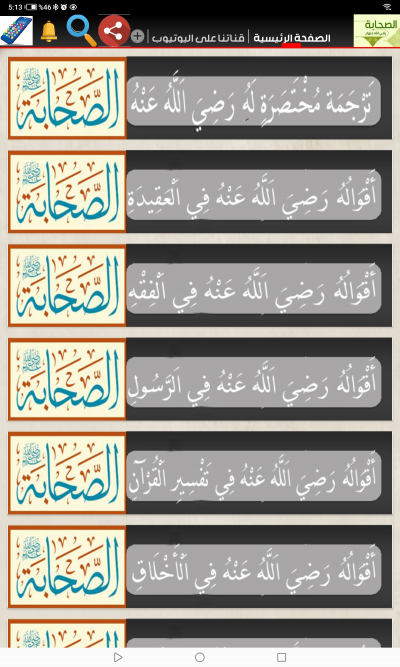 5:13 %46
الصحابة
الصفحة الرئيسية | قناتنا على اليوتيوب
تَرْجَمَة مُخْتَصَرَةٍ لَهُ رَضِيَ اَللَّهُ عَنْهُ
الصَّحَابَة
أَقْوَالُهُ رَضِيَ اَللَّهُ عَنْهُ فِي اَلْعَقِيدَةِ
الصَّحَابَة
أَقْوَالُهُ رَضِيَ اَللَّهُ عَنْهُ فِي اَلْفِقْهِ
الصَّحَابَة
أَقْوَالُهُ رَضِيَ اَللَّهُ عَنْهُ فِي اَلرَّسُولِ
الصَّحَابَة
أَقْوَالُهُ رَضِيَ اَللَّهُ عَنْهُ فِي تَفْسِيرِ اَلْقُرْآنِ
الصَّحَابَة
أَقْوَالُهُ رَضِيَ اَللَّهُ عَنْهُ فِي اَلْأَخْلَاقِ
الصَّحَابَة